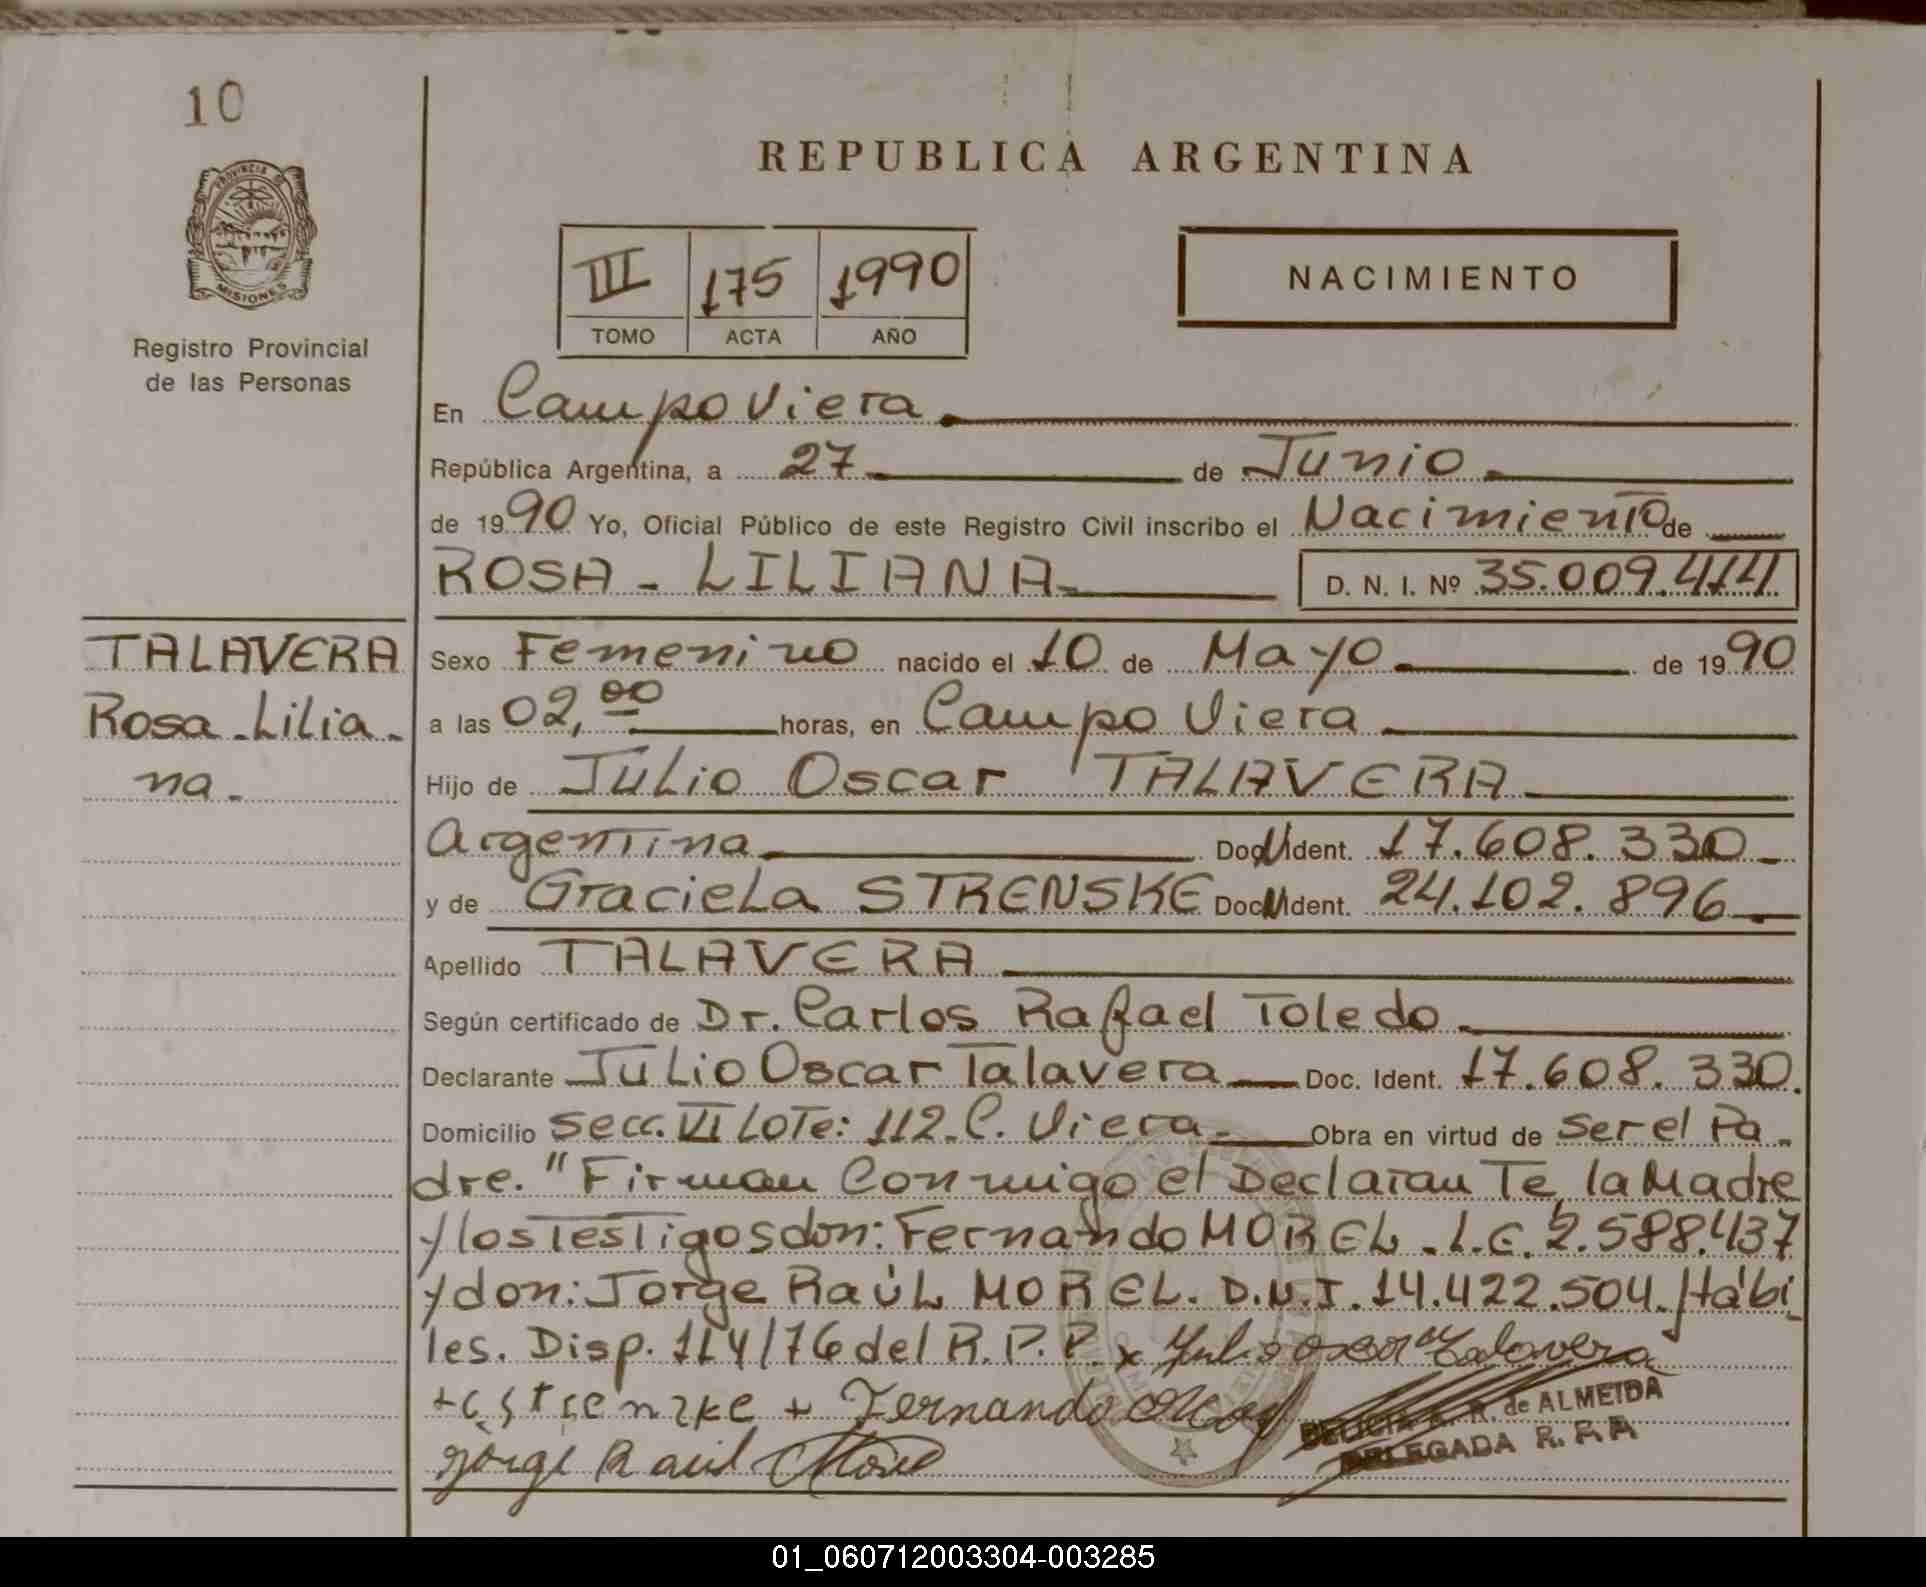 10
REPUBLICA ARGENTINA
PROVINCIA DE
MISIONES
Registro Provincial
de las Personas
III 175 1990
TOMO ACTA AÑO
NACIMIENTO
En Campo Viera
República Argentina, a 27 de Junio
de 1990 Yo, Oficial Público de este Registro Civil inscribo el Nacimiento de
ROSA - LILIANA - D. N. I. Nº 35.009.414
TALAVERA
Rosa - Lilia -
na -
Sexo Femenino nacido el 10 de Mayo de 1990
a las 02,00 horas, en Campo Viera
Hijo de Julio Oscar TALAVERA
Argentina Doc. Ident. 17.608.330
y de Graciela STRENSKE Doc. Ident. 24.102.896
Apellido TALAVERA
Según certificado de Dr. Carlos Rafael Toledo
Declarante Julio Oscar Talavera Doc. Ident. 17.608.330.
Domicilio Secc. VI Lote: 112. C. Viera. Obra en virtud de ser el Pa-
dre. "Firman Conmigo el Declarante, la Madre
y los Testigos don: Fernando MOREL. L.E. 2.588.437
y don: Jorge Raúl MOREL. D.N.I. 14.422.504. Hábi-
les. Disp. 114/76 del R.P.P. x Julio oscar Talavera
+ G. Strenzke + Fernando Morel
Jorge Raul Morel
DELICIA A. R. de ALMEIDA
DELEGADA R. P. P.
01_060712003304-003285